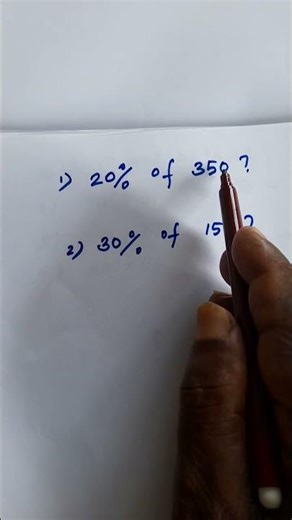 1) 20% of 350 ?
2) 30% of ?